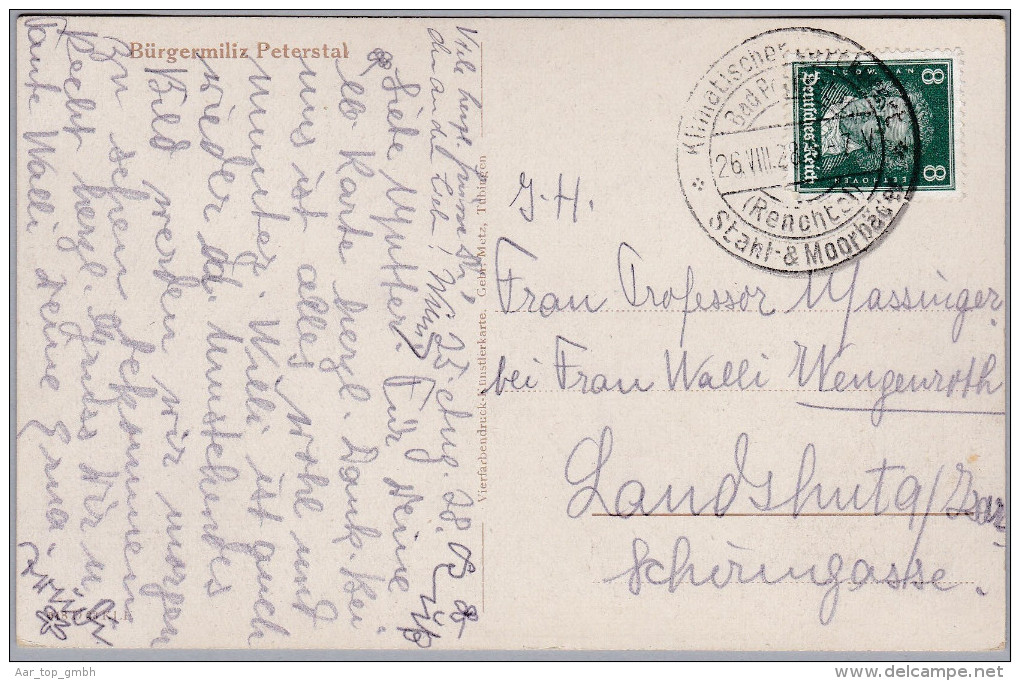 Bürgermiliz Peterstal
Viele herzl. Grüsse
25. Aug. 28.
Liebe Mutter! Für Deine
lb Karte herzl. Dank. Bei
uns ist alles wohl und
munter. Willi ist auch
wieder da. Umstehendes
Bild werden wir morgen
zu sehen bekommen
Recht herzl. Grüsse Dir u.
Tante Walli Deine Erna.
Vierfarbendruck-Künstlerkarte. Gebr. Metz, Tübingen
Klimatischer
Bad Pet
26.VIII.28
(Renchtal)
Stahl- & Moorbäder
8 8
Deutsches Reich
BEETHOVEN
J. H.
Frau Professor Massinger
bei Frau Walli Wengenroth
Landshut a/Isar
Schirmgasse.
Aar_top_gmbh
delcampe.net